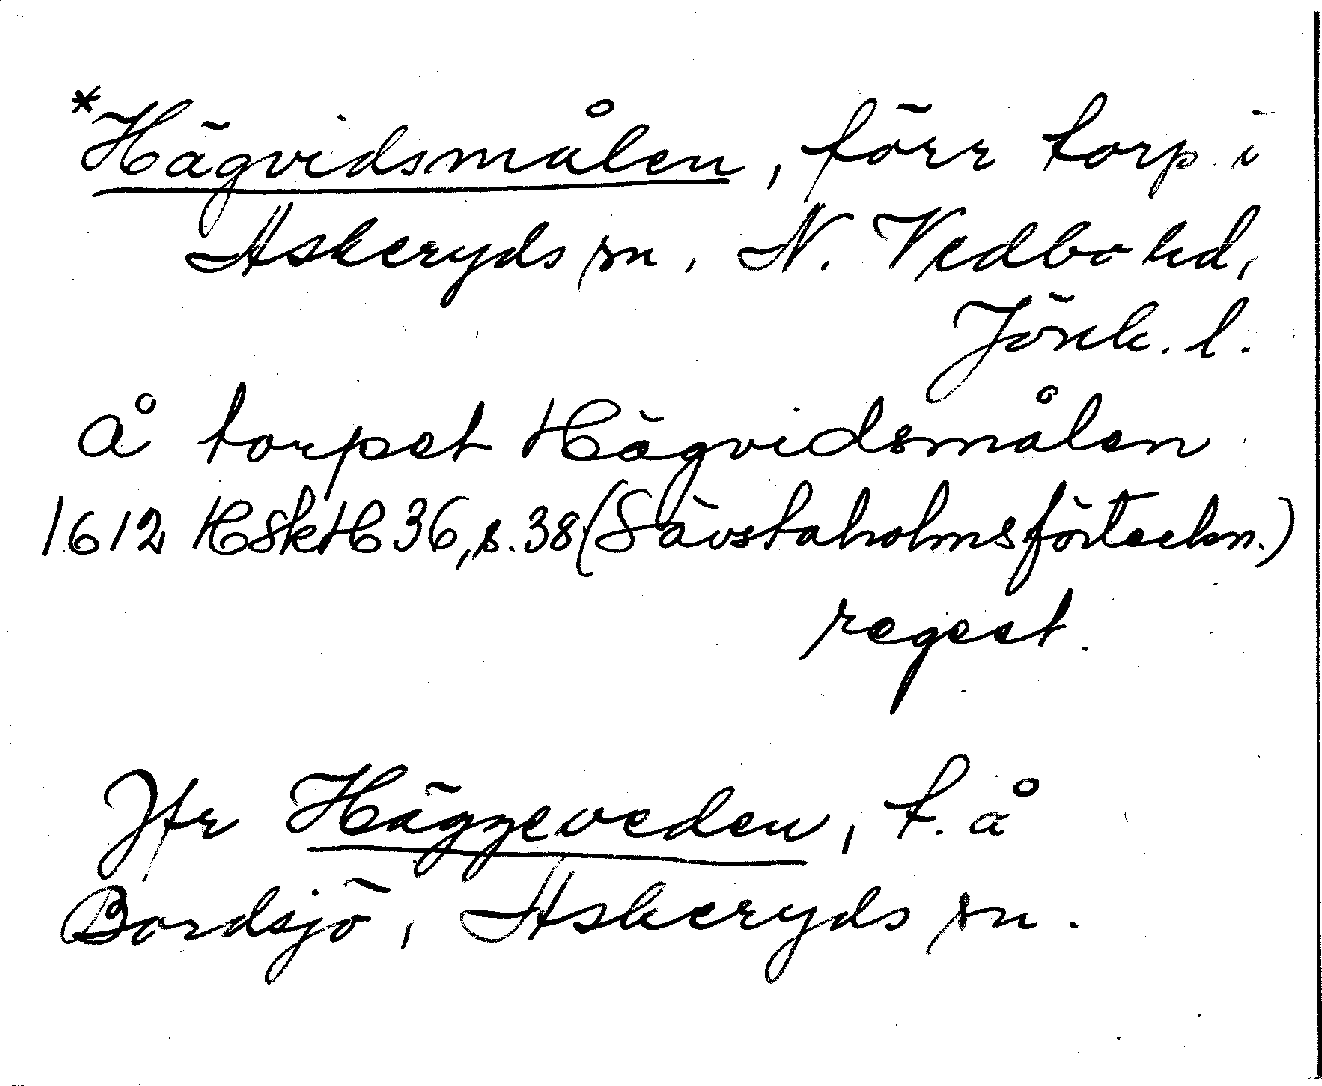 *Hägvidsmålen, förr torp i
Askeryds sn, N. Vedbo hd,
Jönk. l.
Å torpet Hägvidsmålen
1612 HSkH 36, s. 38 (Sävstaholmsförteckn.)
regest.
Jfr Häggeveden, t. å
Bordsjö, Askeryds sn.